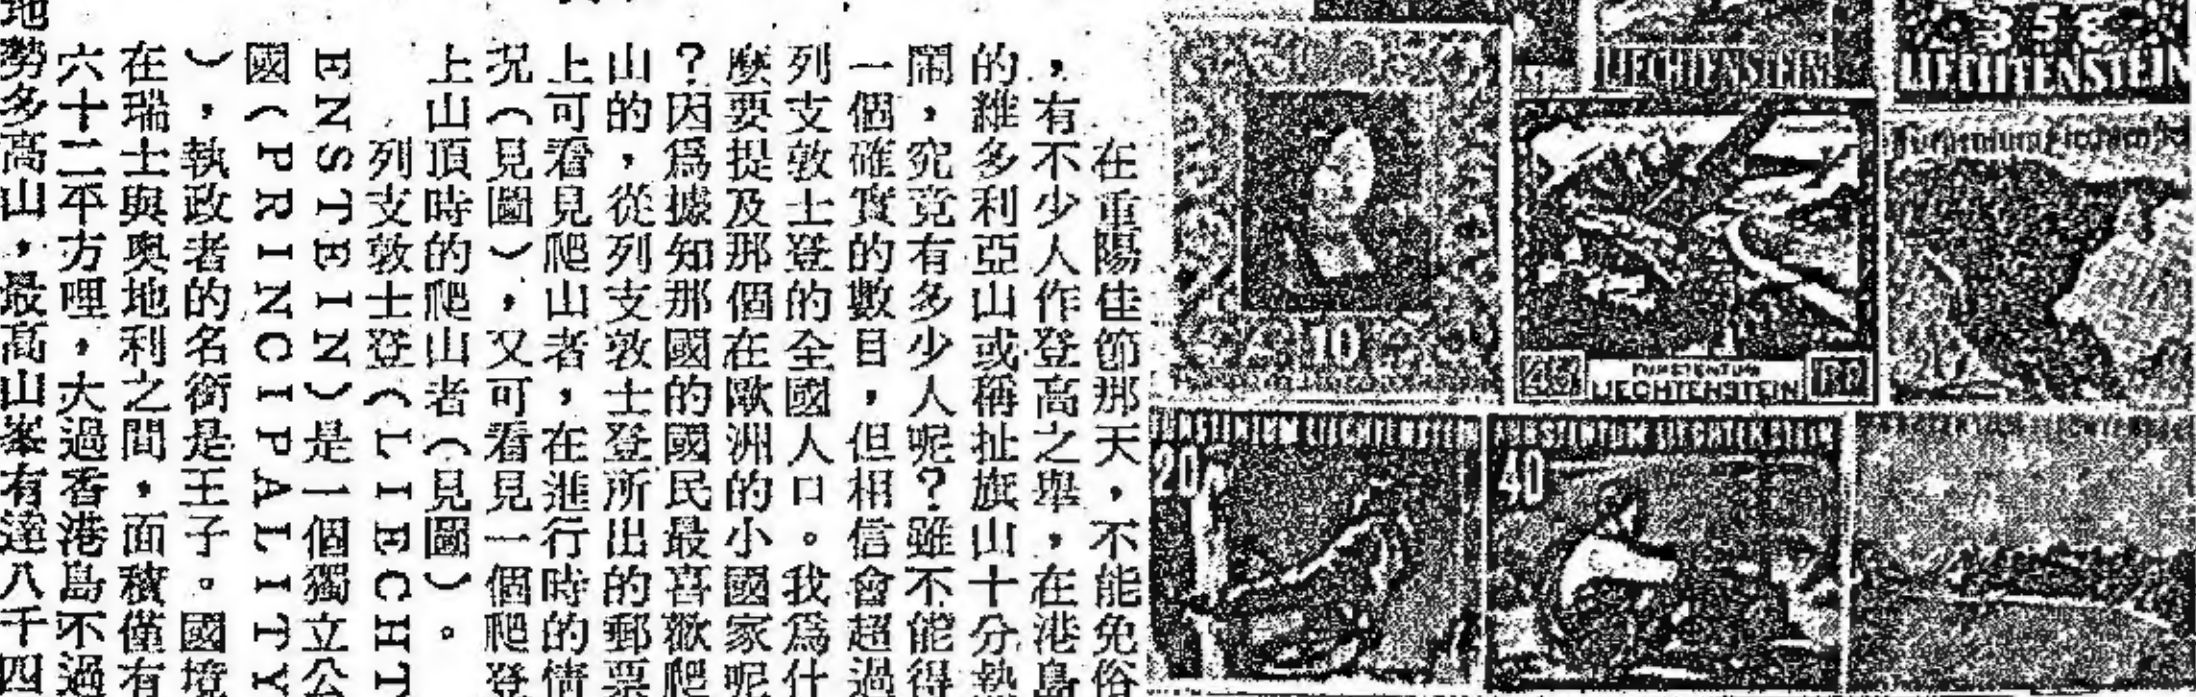 在重陽佳節那天，不能免俗
，有不少人作登高之舉，在港島
的維多利亞山或稱扯旗山十分熱
鬧，究竟有多少人呢？雖不能得
一個確實的數目，但相信會超過
列支敦士登的全國人口。我爲什
麽要提及那個在歐洲的小國家呢
？因爲據知那國的國民最喜歡爬
山的，從列支敦士登所出的郵票
上可看見爬山者，在進行時的情
況（見圖），又可看見一個爬登
上山頂時的爬山者（見圖）。
列支敦士登（LIECHT
ENSTEIN）是一個獨立公
國（PRINCIPALITY
），執政者的名銜是王子。國境
在瑞士與奧地利之間，面積僅有
六十二平方哩，大過香港島不過
地勢多高山，最高山峯有達八千四
LIECHTENSTEIN
LIECHTENSTEIN
10
1
FURSTENTUM
LIECHTENSTEIN
FURSTENTUM LIECHTENSTEIN
20
FURSTENTUM LIECHTENSTEIN
40